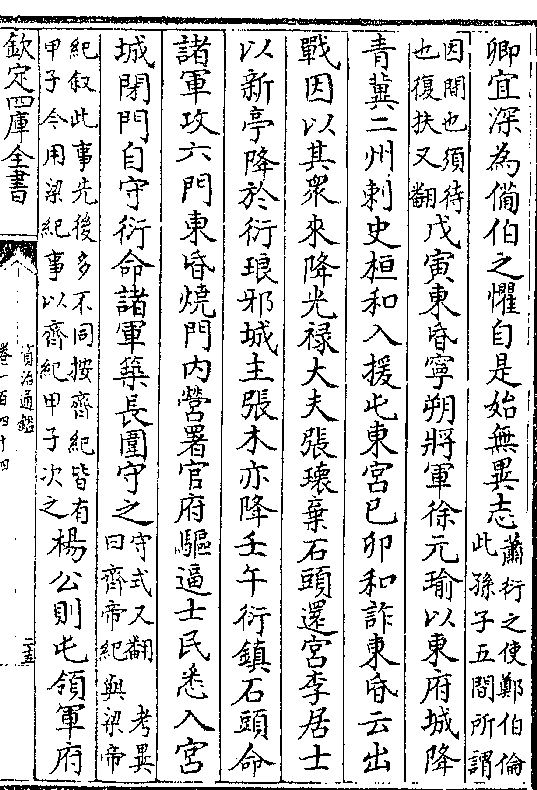 卿宜深為備伯之懼自是始無異志蕭衍之使鄭伯倫此孫子五間所謂
因間也須待也復扶又翻戊寅東昏寧朔將軍徐元瑜以東府城降
青冀二州刺史桓和入援屯東宮己卯和詐東昏云出
戰因以其衆來降光祿大夫張瓌棄石頭還宮李居士
以新亭降於衍琅邪城主張木亦降壬午衍鎮石頭命
諸軍攻六門東昏燒門内營署官府驅逼士民悉入宮
城閉門自守衍命諸軍築長圍守之守式又翻 考異曰齊帝紀與梁帝
紀叙此事先後多不同按齊紀皆有甲子今用梁紀事以齊紀甲子次之楊公則屯領軍府
欽定四庫全書
資治通鑑
卷一百四十四